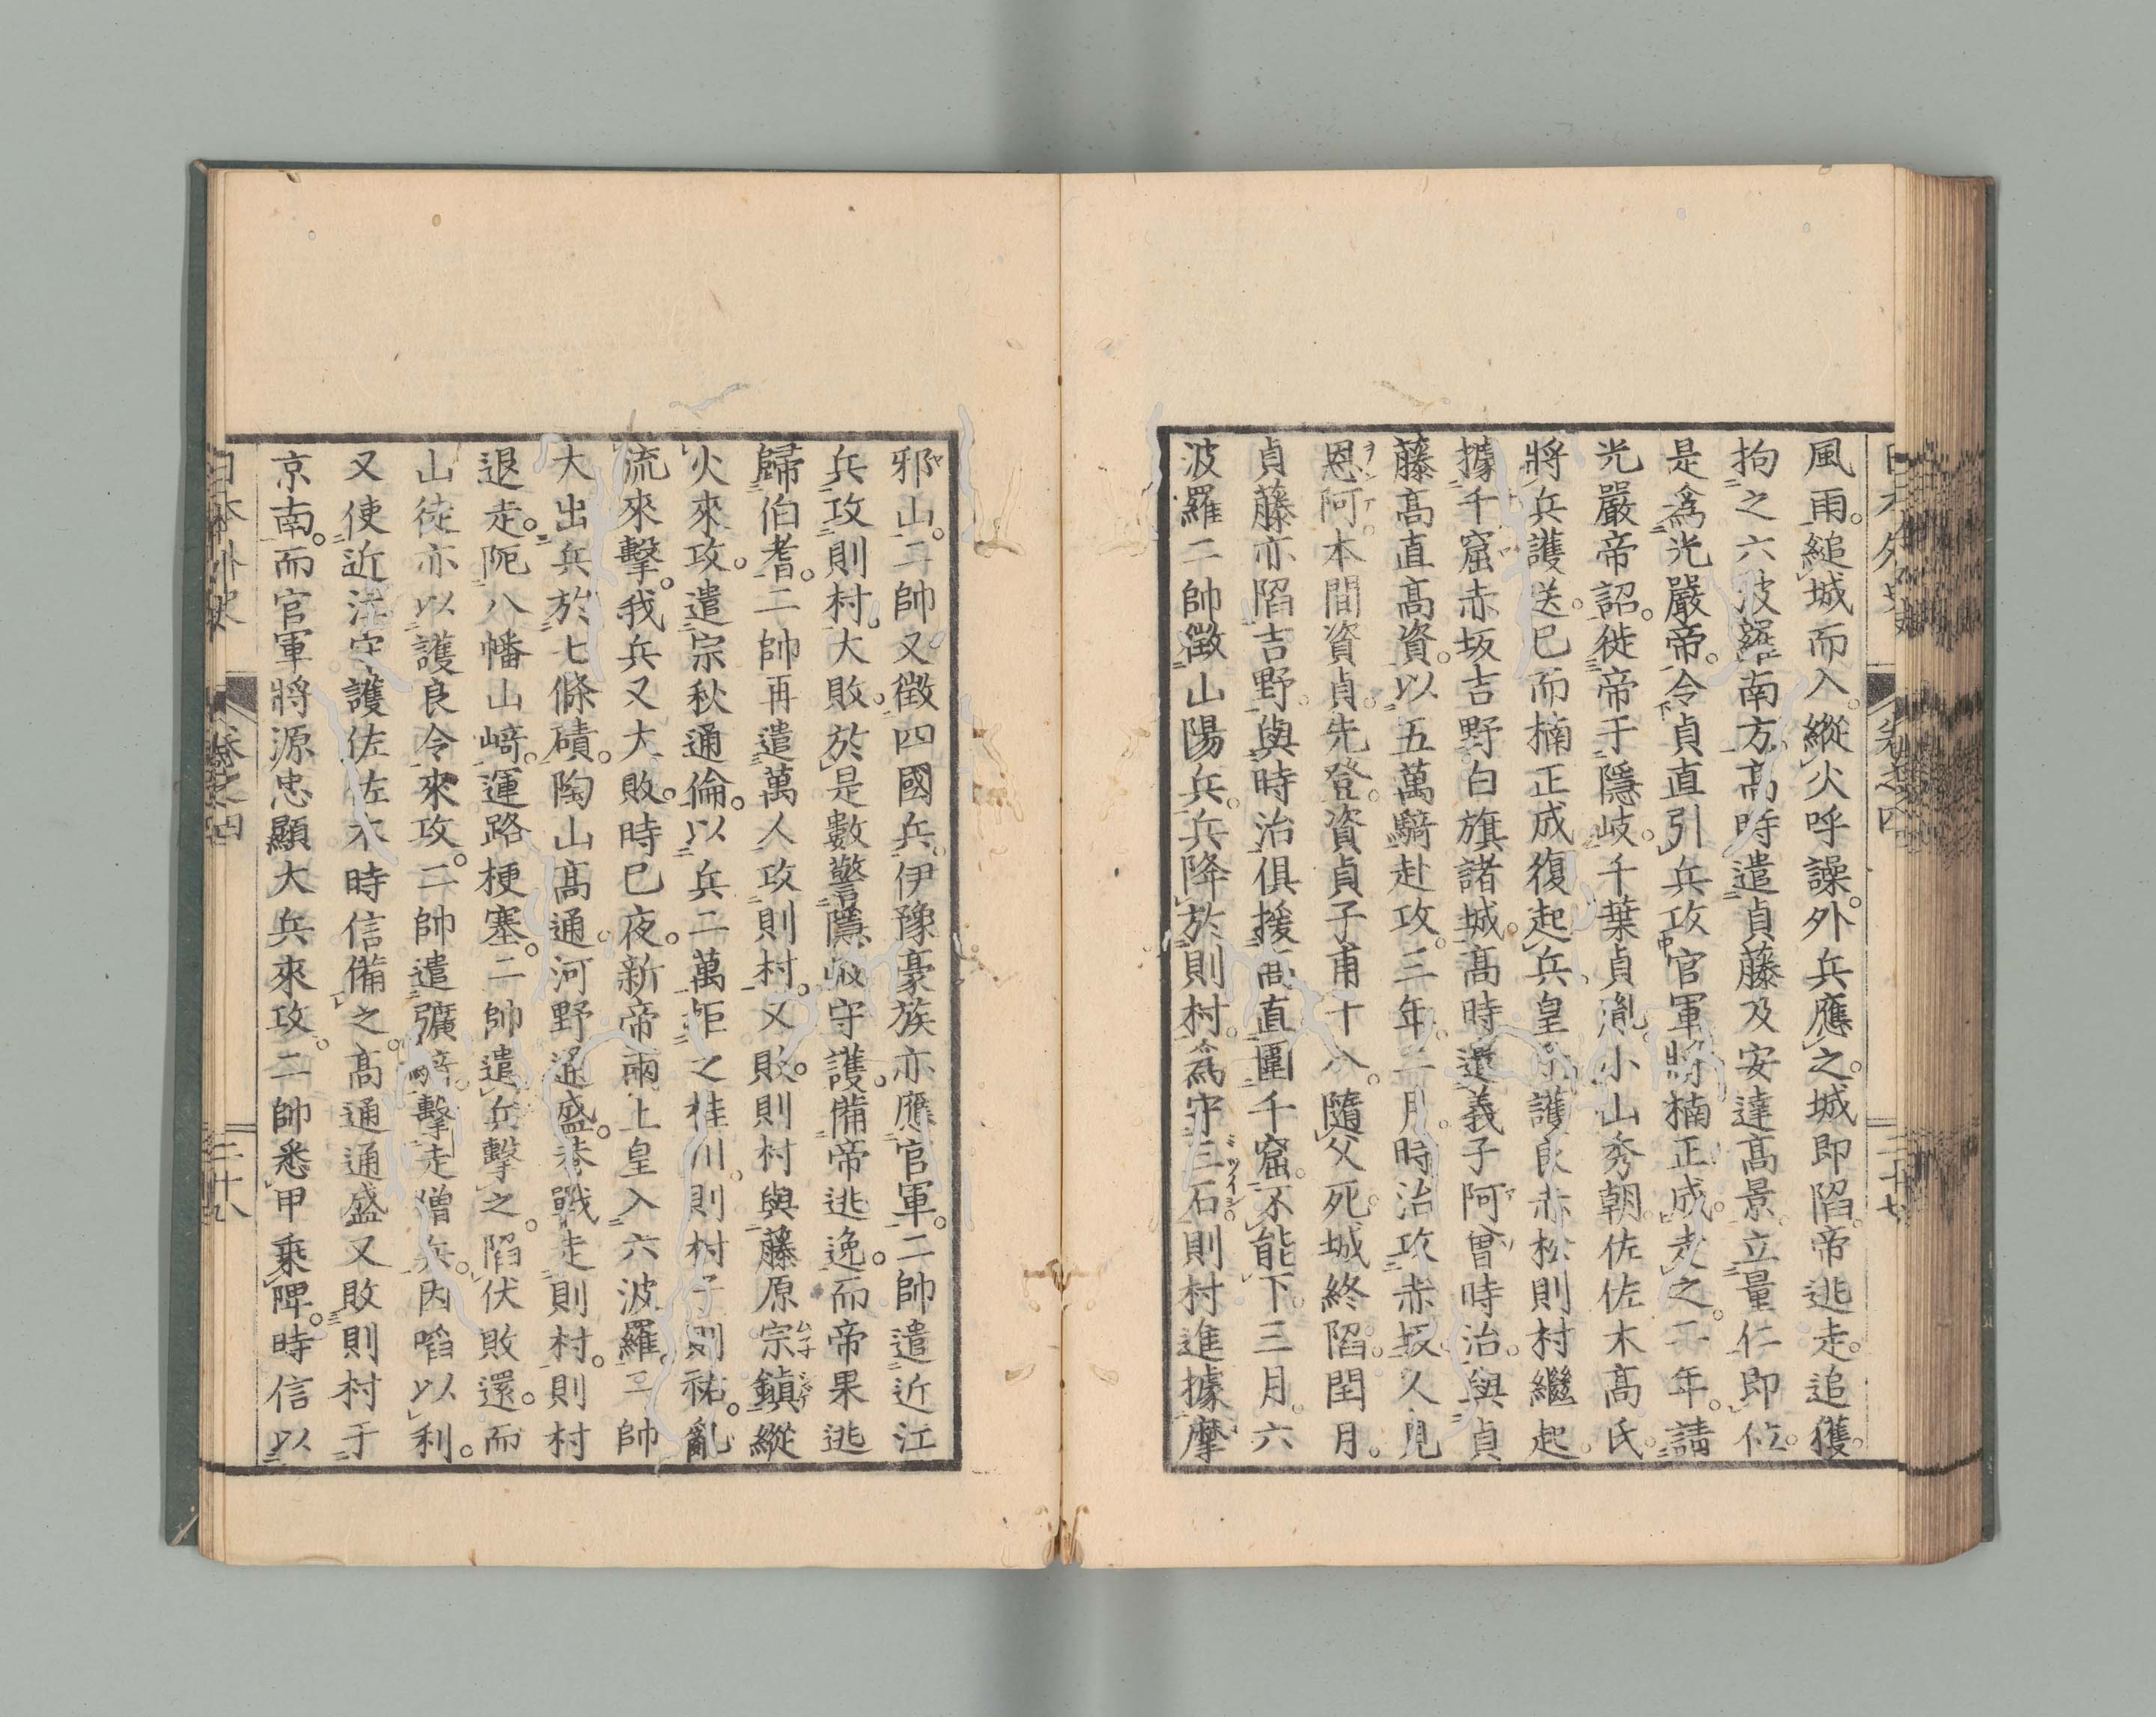 風雨。縋城而入。縱火呼譟。外兵應之。城即陷。帝逃走。追獲。
拘之六波羅南方。高時遣貞藤及安達高景。立量仁即位。
是為光嚴帝。令貞直引兵攻官軍將楠正成。走之。二年。請
光嚴帝詔。徙帝于隱岐。千葉貞胤小山秀朝。佐佐木高氏。
將兵護送。已而楠正成復起兵。皇子護良赤松則村繼起。
據千窟赤坂吉野白旗諸城。高時遣義子阿曾時治。與貞
藤高直高資。以五萬騎赴攻。三年。二月。時治攻赤坂。人見
恩阿。本間資貞。先登。資貞子甫十八。隨父死。城終陷。閏月。
貞藤亦陷吉野。與時治俱援高直圍千窟。不能下。三月。六
波羅二帥徵山陽兵。兵降於則村。為守三石則村進據摩
邪山。二帥又徵四國兵。伊豫豪族亦應官軍。二帥遣近江
兵攻則村。大敗。於是數警隱岐守護。備帝逃逸。而帝果逃
歸伯耆。二帥再遣萬人攻則村。又敗。則村與藤原宗鎮縱
火來攻。遣宗秋通倫。以兵二萬距之桂川。則村子則祐。亂
流來擊。我兵又大敗。時已夜。新帝兩上皇入六波羅。二帥
大出兵於七條磧。陶山高通河野通盛。巷戰走則村。則村
退走。阨八幡山﨑。運路梗塞。二帥遣兵擊之。陷伏敗還。而
山徒亦以護良令來攻。二帥遣彍騎擊走僧兵。因啗以利。
又使近江守護佐佐木時信備之。高通通盛又敗則村于
京南。而官軍將源忠顯大兵來攻。二帥悉甲乘陴。時信以
日本外史 卷之四 二十七
日本外史 卷之四 二十八